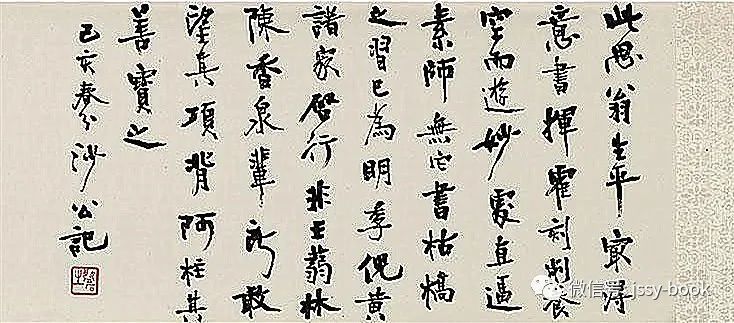 此思翁生平最得
意書揮霍刻削
空而遊妙處直逼
素師無它書枯槁
之習已為明季倪黃
諸家啓行非王蒻林
陳香泉輩所敢
望其項背阿柱其
善寶之
己亥春分沙公記
微信号: jssy-book